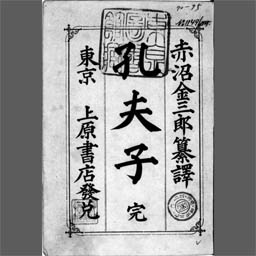 赤沼金三郎纂譯
孔夫子 完
東京 上原書店發兌